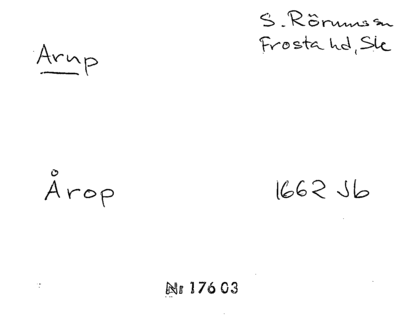 Arup
S. Rörums sn
Frosta hd, Sk
Årop
1662 Jb
Nr 176 03